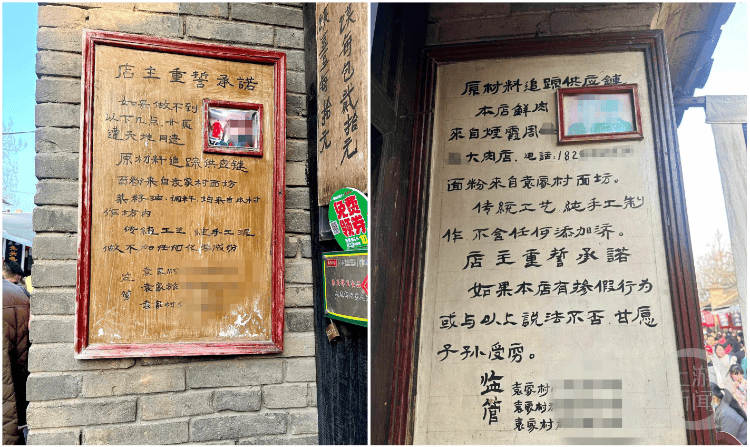 店主重誓承諾
如果做不到
以下几点.甘愿
遭天地同遣
原材料追踪供应链
面粉来自袁家村面坊
菜籽油.调料.均来自本村
作坊内
传统工艺.纯手工泥
做不加任何化学成份
监管
袁家村
袁家村
袁家村
陸拾元
每包贰拾元
便民
领券
原材料追踪供应链
本店鲜肉
来自烟霞周
大肉店.电话:182
面粉来自袁家村面坊。
传统工艺纯手工制
作.不含任何添加济。
店主重誓承諾
如果本店有掺假行为
或与以上説法不否.甘愿
子孙受穷。
监管
袁家村
袁家村
袁家村
新闻